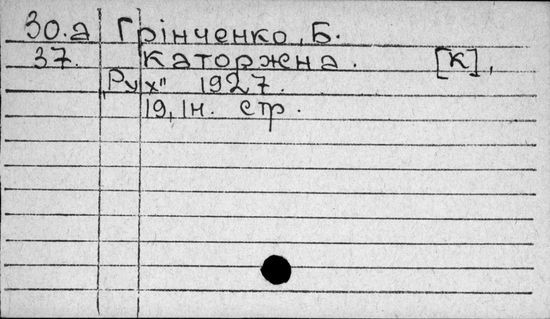 30.а Грінченко, Б.
37. Каторжна. [К],
„Рух" 1927.
19, 1н. стр.